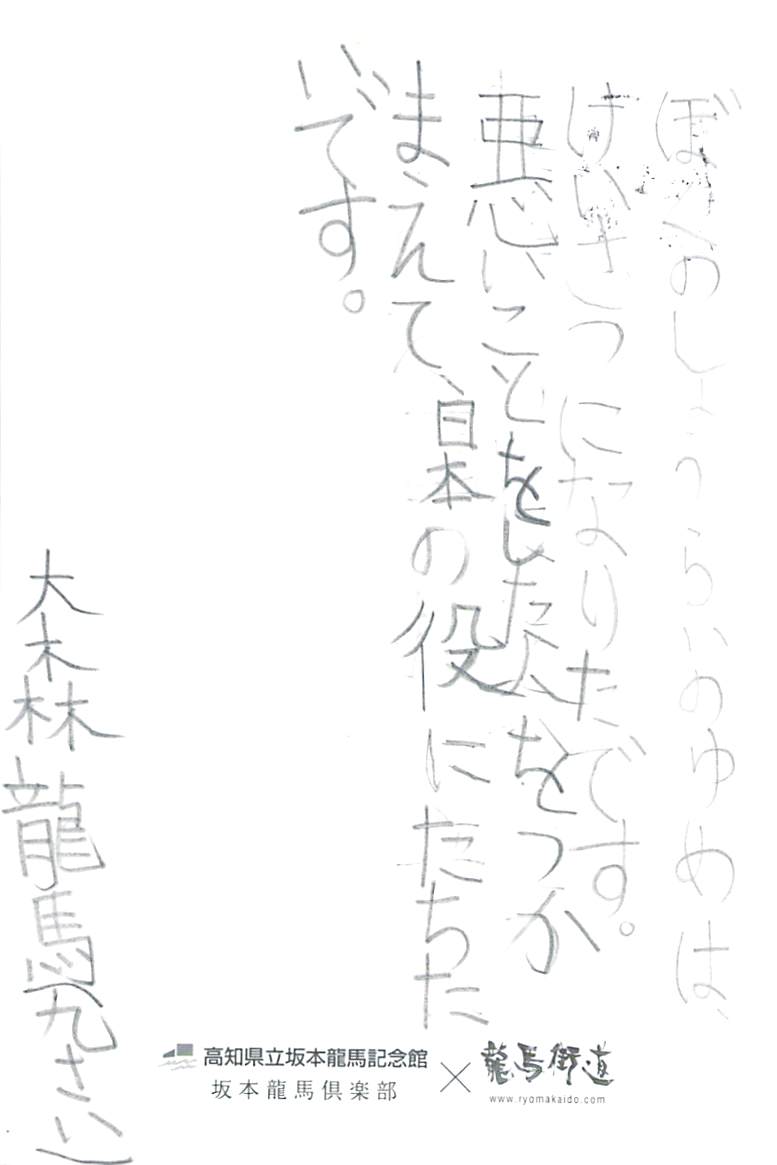 ぼくのしょうらいのゆめは、
けいさつになりたです。
悪いことをした人をつか
まえて、日本の役にたちた
いです。
大森龍馬九さい
高知県立坂本龍馬記念館
坂本龍馬倶楽部
×
龍馬街道
www.ryomakaido.com